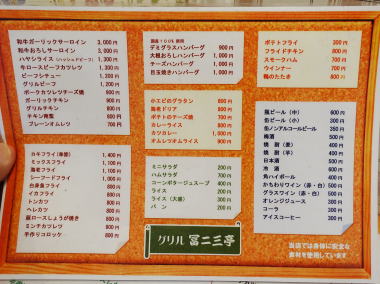 和牛ガーリックサーロイン 3,000円
和牛おろしサーロイン 3,000円
ハヤシライス(ハッシュドビーフ) 1,300円
牛ロースビーフカツレツ 1,300円
ビーフシチュー 1,200円
グリルビーフ 1,200円
ポークカツレツチーズ焼 900円
ガーリックチキン 900円
グリルチキン 800円
チキン南蛮 800円
プレーンオムレツ 700円
カキフライ(季節) 1,400円
ミックスフライ 1,100円
海老フライ 1,100円
シーフードフライ 1,000円
白身魚フライ 800円
イカフライ 800円
トンカツ 800円
ヘレカツ 900円
豚ロースしょうが焼き 800円
ミンチカツレツ 800円
手作りコロッケ 800円
国産100%使用
デミグラスハンバーグ 900円
大根おろしハンバーグ 1,000円
チーズハンバーグ 1,000円
目玉焼きハンバーグ 1,000円
小エビのグラタン 800円
海老ドリア 900円
ポテトのチーズ焼 700円
カレーライス 800円
カツカレー 1,000円
オムレツオムライス 900円
ミニサラダ 200円
ハムサラダ 700円
コーンポタージュスープ 400円
ライス 200円
ライス(大盛) 300円
パン 200円
グリル 冨二三亭
ポテトフライ 300円
フライドチキン 800円
スモークハム 700円
ウインナー 700円
鴨のたたき 800円
瓶ビール(中) 600円
缶ビール(小) 300円
缶ノンアルコールビール 350円
梅酒 500円
焼酎(麦) 500円
焼酎(芋) 500円
日本酒 500円
冷酒 600円
角ハイボール 400円
かちわりワイン(赤・白) 500円
グラスワイン(赤・白) 500円
オレンジジュース 300円
コーラ 300円
アイスコーヒー 300円
当店では身体に安全な
素材を使用しています